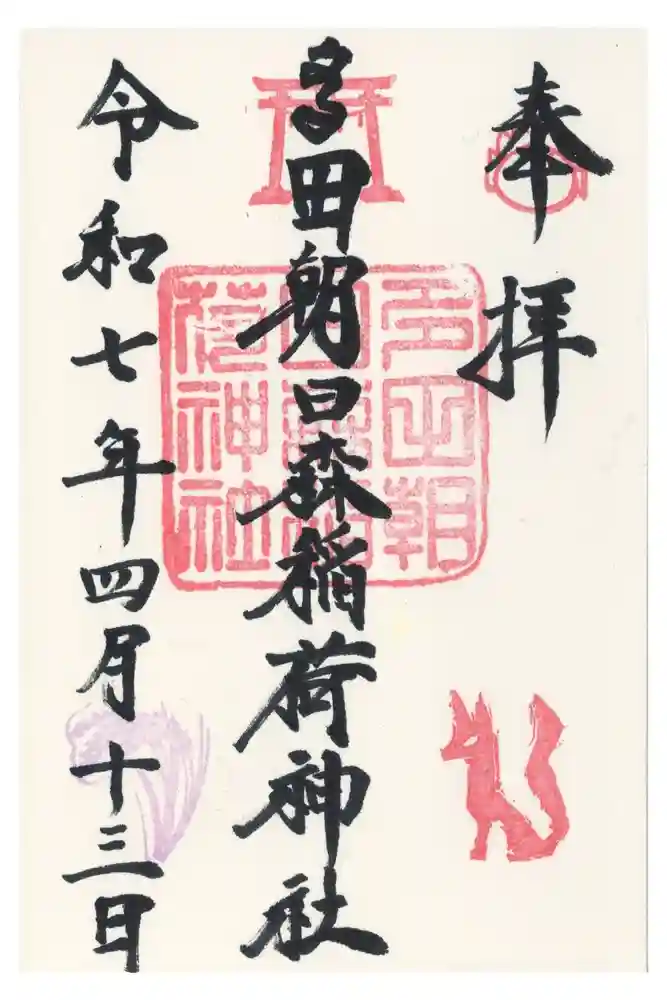 奉拝
多田朝日森稲荷神社
多田朝
日森稲
荷神社
令和七年四月十三日